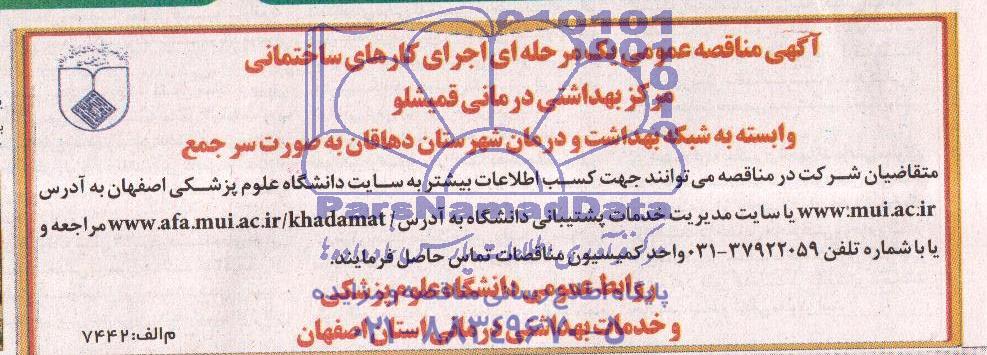 آگهی مناقصه عمومی یک مرحله ای اجرای کارهای ساختمانی
مرکز بهداشتی درمانی قمیشلو
وابسته به شبکه بهداشت و درمان شهرستان دهاقان به صورت سرجمع
متقاضیان شرکت در مناقصه می توانند جهت کسب اطلاعات بیشتر به سایت دانشگاه علوم پزشکی اصفهان به آدرس
www.mui.ac.ir یا سایت مدیریت خدمات پشتیبانی دانشگاه به آدرس / www.afa.mui.ac.ir/khadamat مراجعه و
یا با شماره تلفن ۳۷۹۲۲۰۵۹-۰۳۱ واحد کمیسیون مناقصات تماس حاصل فرمایند.
روابط عمومی دانشگاه علوم پزشکی
و خدمات بهداشتی درمانی استان اصفهان
م الف: ۷۴۴۲
ParsNamadData
پایگاه اطلاع رسانی مناقصه و مزایده